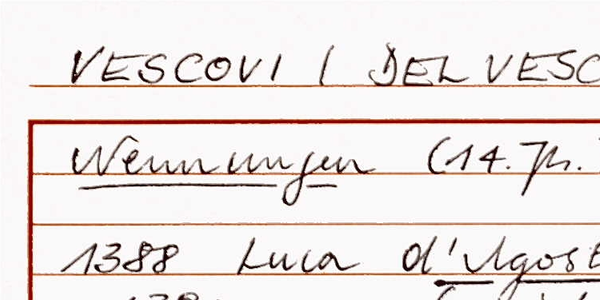 VESCOVI / DEL VESC
Nennungen (14. Jh.
1388 Luca d'Agost